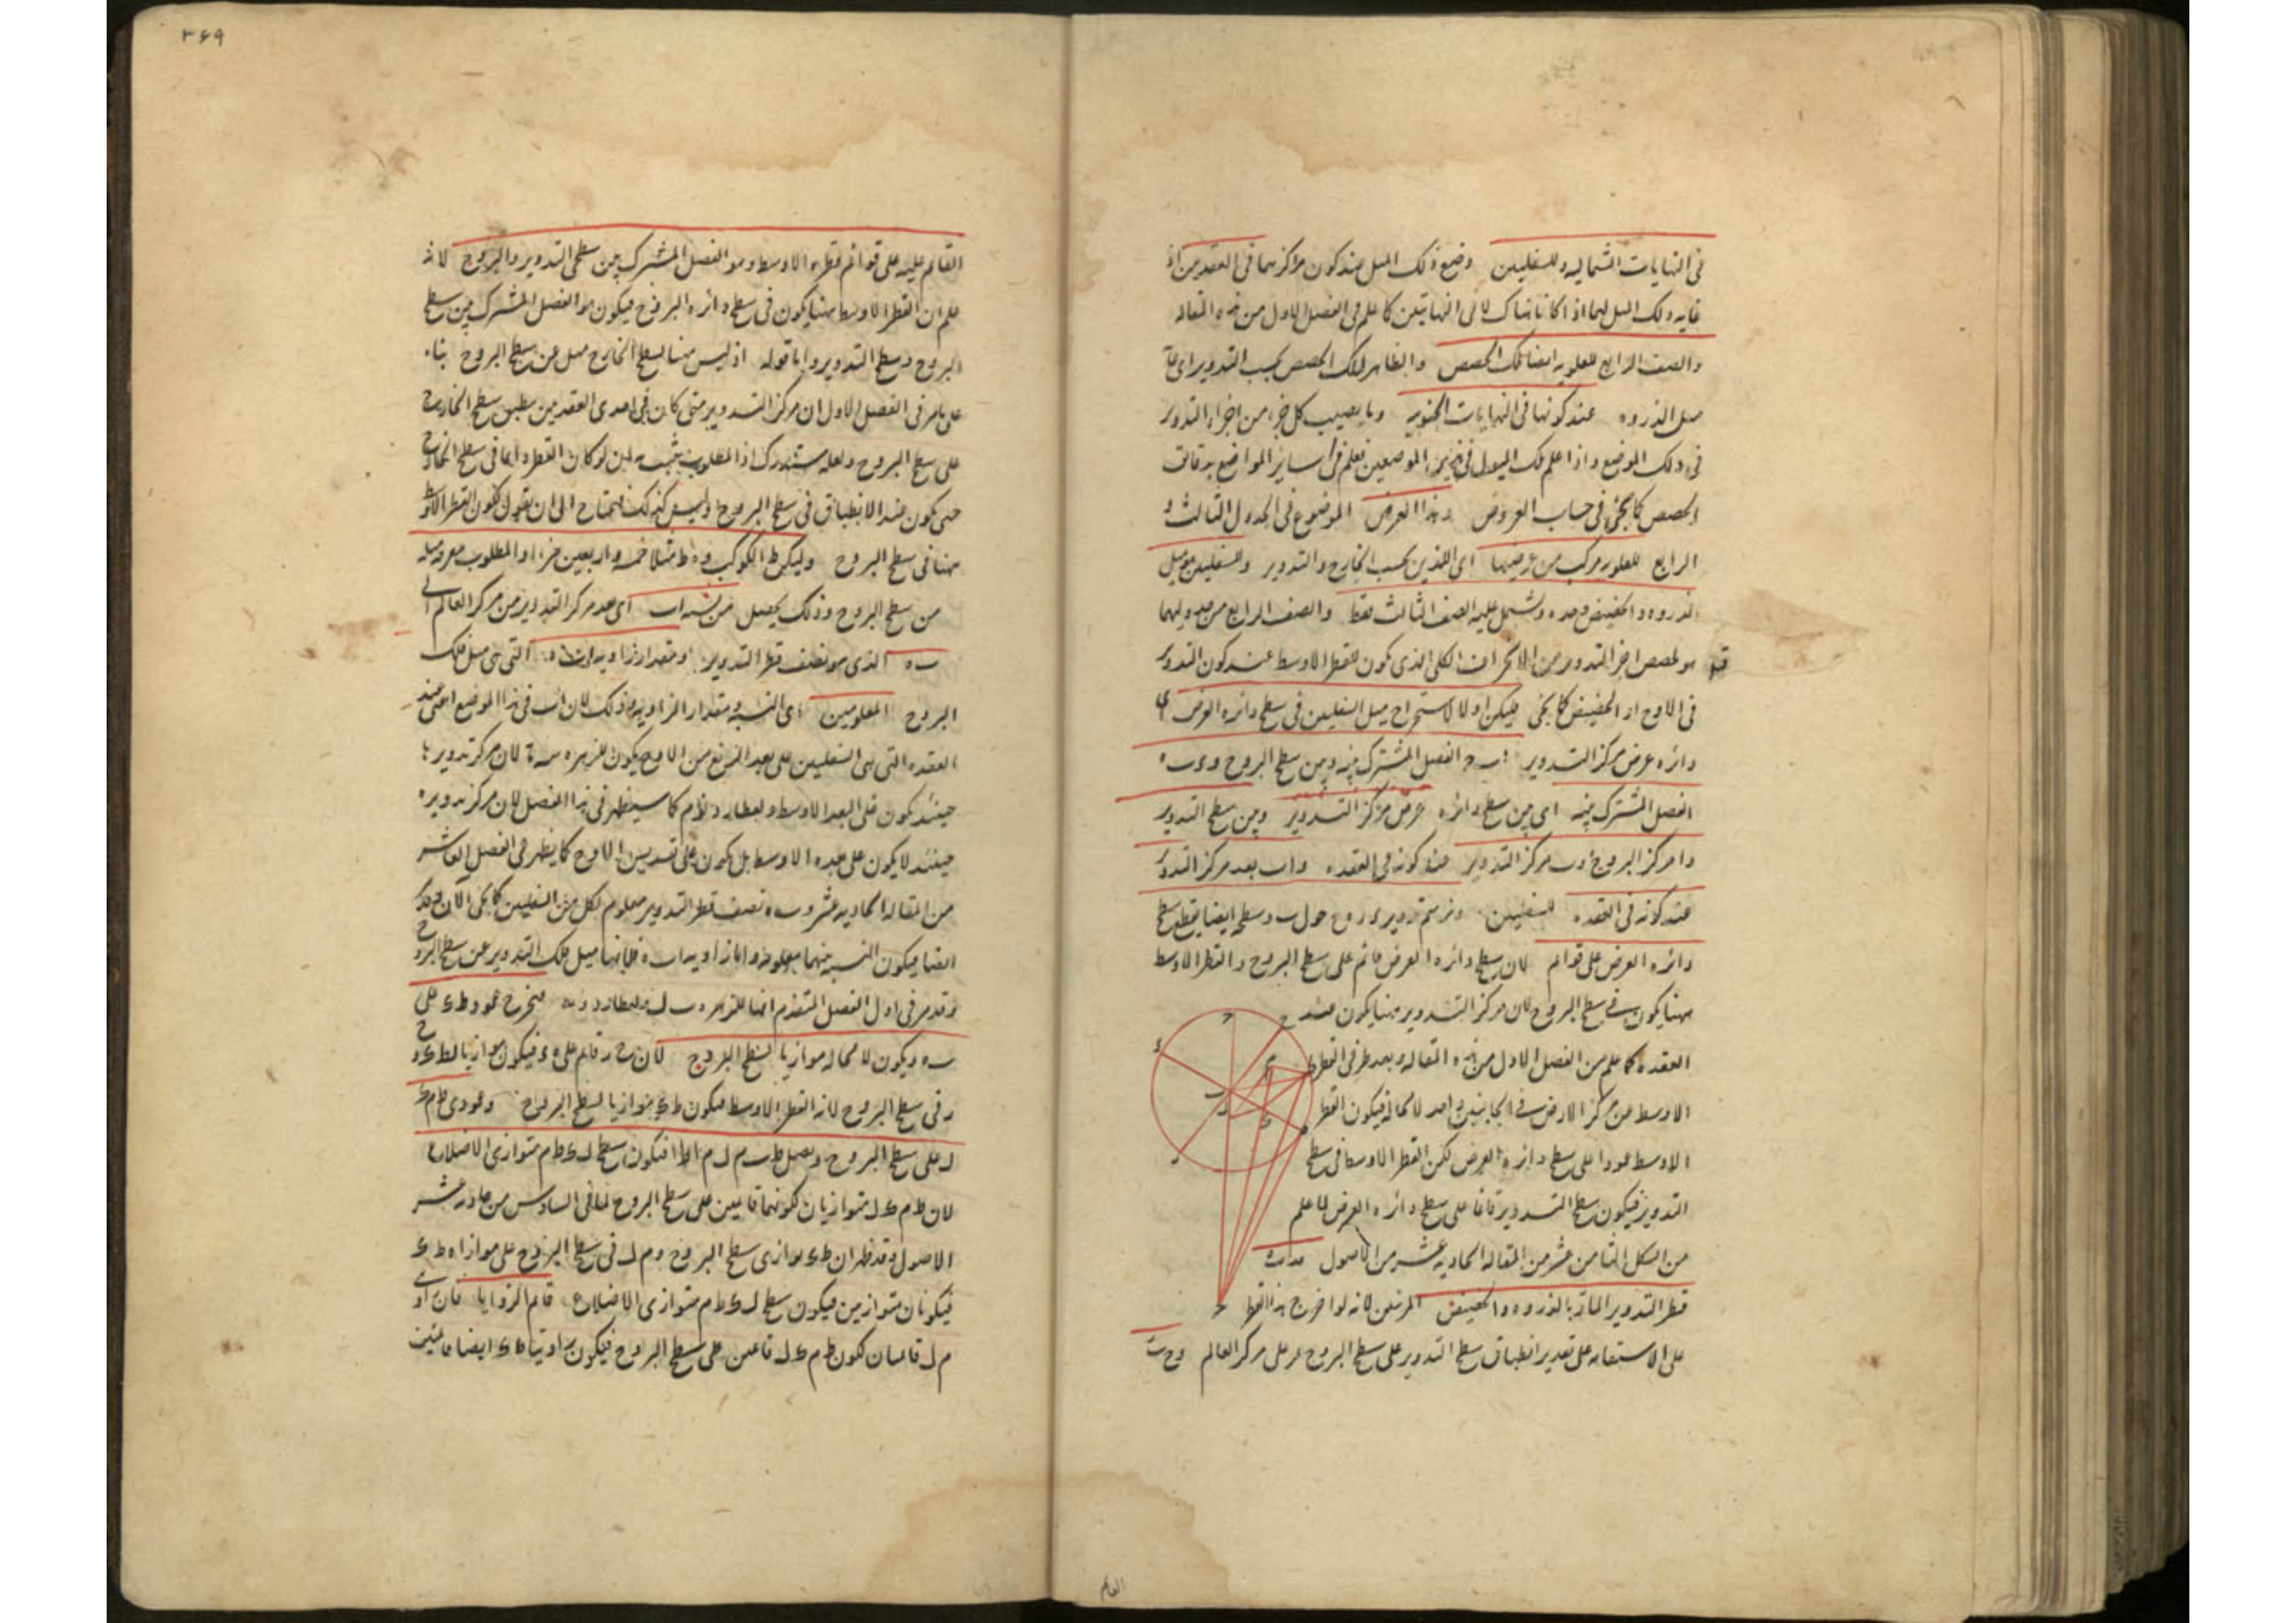 فى النهايات الشماليه وللسفليين وضع ذلك الميل عند كون مراكزهما فى العقدتين اذ
غايه ذلك الميل لهما اذا كانا هناك لا فى النهايتين كما علم فى الفصل الاول من هذه المقاله
والصف الرابع للعلويه ايضا تلك الحصص والظاهر لتلك الحصص بحسب التدوير اى
ميل الذروه عند كونها فى النهايات الجنوبيه وما يصيب كل جزء من اجزاء التدوير
فى ذلك الموضع واذا علم تلك الميول فى هذين الموضعين فعلم فى ساير المواضع بدقائق
الحصص كما يجئ فى حساب العروض وهذا العرض الموضوع فى الجدول الثالث و
الرابع للعلويه مركب من عرضيها اى اللذين بحسب الخارج والتدوير وللسفليين هو ميل
الذروه والحضيض وحده ويشتمل عليه الصف الثالث فقط والصف الرابع من جدوليهما
هو لحصص اجزاء التدوير من الانحراف الكلى الذى يكون للقطر الاوسط عند كون التدوير
فى الاوج او الحضيض كما يجئ فليكن اولا لاستخراج ميل السفليين فى سطح دائره العرض اى
دائره عرض مركز التدوير ا ب ج الفصل المشترك بينه وبين سطح البروج و ء ب ه
الفصل المشترك بينه اى بين سطح دائره عرض مركز التدوير وبين سطح التدوير
و ا مركز البروج و ب مركز التدوير عند كونه فى العقده و ا ب بعد مركز التدوير
عند كونه فى العقده للسفليين ونرسم تدوير ء ر ه ح حول ب وسطحه ايضا يقطع سطح
دائره العرض على قوائم لان سطح دائره العرض قائم على سطح البروج والقطر الاوسط
ههنا يكون فى سطح البروج لان مركز التدوير ههنا يكون عند
العقده كما علم من الفصل الاول من هذه المقاله وبعد طرفى القطر
الاوسط من مركز الارض فى الجانبين واحد لا محاله فيكون القطر
الاوسط عمودا على سطح دائره العرض لكن القطر الاوسط فى سطح
التدوير فيكون سطح التدوير قائما على سطح دائره العرض لما علم
من الشكل الثامن عشر من المقاله الحاديه عشر من الاصول
قطر التدوير المار بالذروه والحضيض المرئيين لانه لو اخرج هذا القطر
على الاستقامه على تقدير انطباق سطح التدوير على سطح البروج مر على مركز العالم و ح ب
القائم
٣٦٩
القائم عليه على قوائم قطره الاوسط وهو الفصل المشترك بين سطحى التدوير والبروج لانه
علم ان القطر الاوسط ههنا يكون فى سطح دائره البروج فيكون هو الفصل المشترك بين سطح
البروج وسطح التدوير واما قوله اذ ليس ههنا لسطح الخارج ميل عن سطح البروج بناء
على ما مر فى الفصل الاول ان مركز التدوير متى كان فى احدى العقدتين ينطبق سطح الخارج
على سطح البروج ولعله مستدرك اذ المطلوب يثبت به لمن لو كان القطر دايما فى سطح الخارج
حتى يكون عند الانطباق فى سطح البروج وليس كذلك فيحتاج الى ان يقول لكون القطر الاوسط
ههنا فى سطح البروج وليكن ط الكوكب و ه ط مثلا خمسه واربعين جزءا والمطلوب معرفه ميله
من سطح البروج وذلك يحصل من نسبه ا ب اى بعد مركز التدوير من مركز العالم الى
ب ه الذى هو نصف قطر التدوير ومقدار زاويه ا ب ه التى هى ميل فلك
البروج المعلومين اى النسبه ومقدار الزاويه وذلك لان ا ب فى هذا الموضع اعنى عند
العقده التى هى للسفليين على بعد الربع من الاوج يكون للزهره لان مركز تدويرها
حينئذ يكون على البعد الاوسط ولعطارد كما سيظهر فى هذا الفصل لان مركز تدويره
حينئذ لا يكون على بعده الاوسط بل يكون على تسديس الاوج كما يظهر فى الفصل العاشر
من المقاله الحاديه عشر و ب ه نصف قطر التدوير معلوم لكل من السفليين كما يجئ الآن
ايضا فيكون النسبه بينهما معلومه واما زاويه ا ب ه فلانها ميل فلك التدوير عن سطح البروج
وقد مر فى اول الفصل المتقدم انها للزهره ولعطارد فنخرج عمود ط ك على
ب ه ويكون لا محاله موازيا لسطح البروج لان ح ر قائم على ء ه فيكون موازيا لط ك و
ر فى سطح البروج لانه القطر الاوسط فيكون ط ك موازيا لسطح البروج وعمودى ط م ك
ل على سطح البروج ونصل ط ب م ل م ا ط ا فيكون سطح ل ك ط م متوازى الاضلاع
لان ط م ك ل متوازيان لكونهما قائمين على سطح البروج لما فى السادس من حادى عشر
الاصول وقد ظهر ان ط ك يوازى سطح البروج و م ل فى سطح البروج على موازاه ط ك
فيكونان متوازيين فيكون سطح ل ك ط م متوازى الاضلاع قائم الزوايا فان زاويتى
م ل قائمتان لكون ط م ك ل قائمين على سطح البروج فيكون زاويتا ط ك ايضا قائمتين